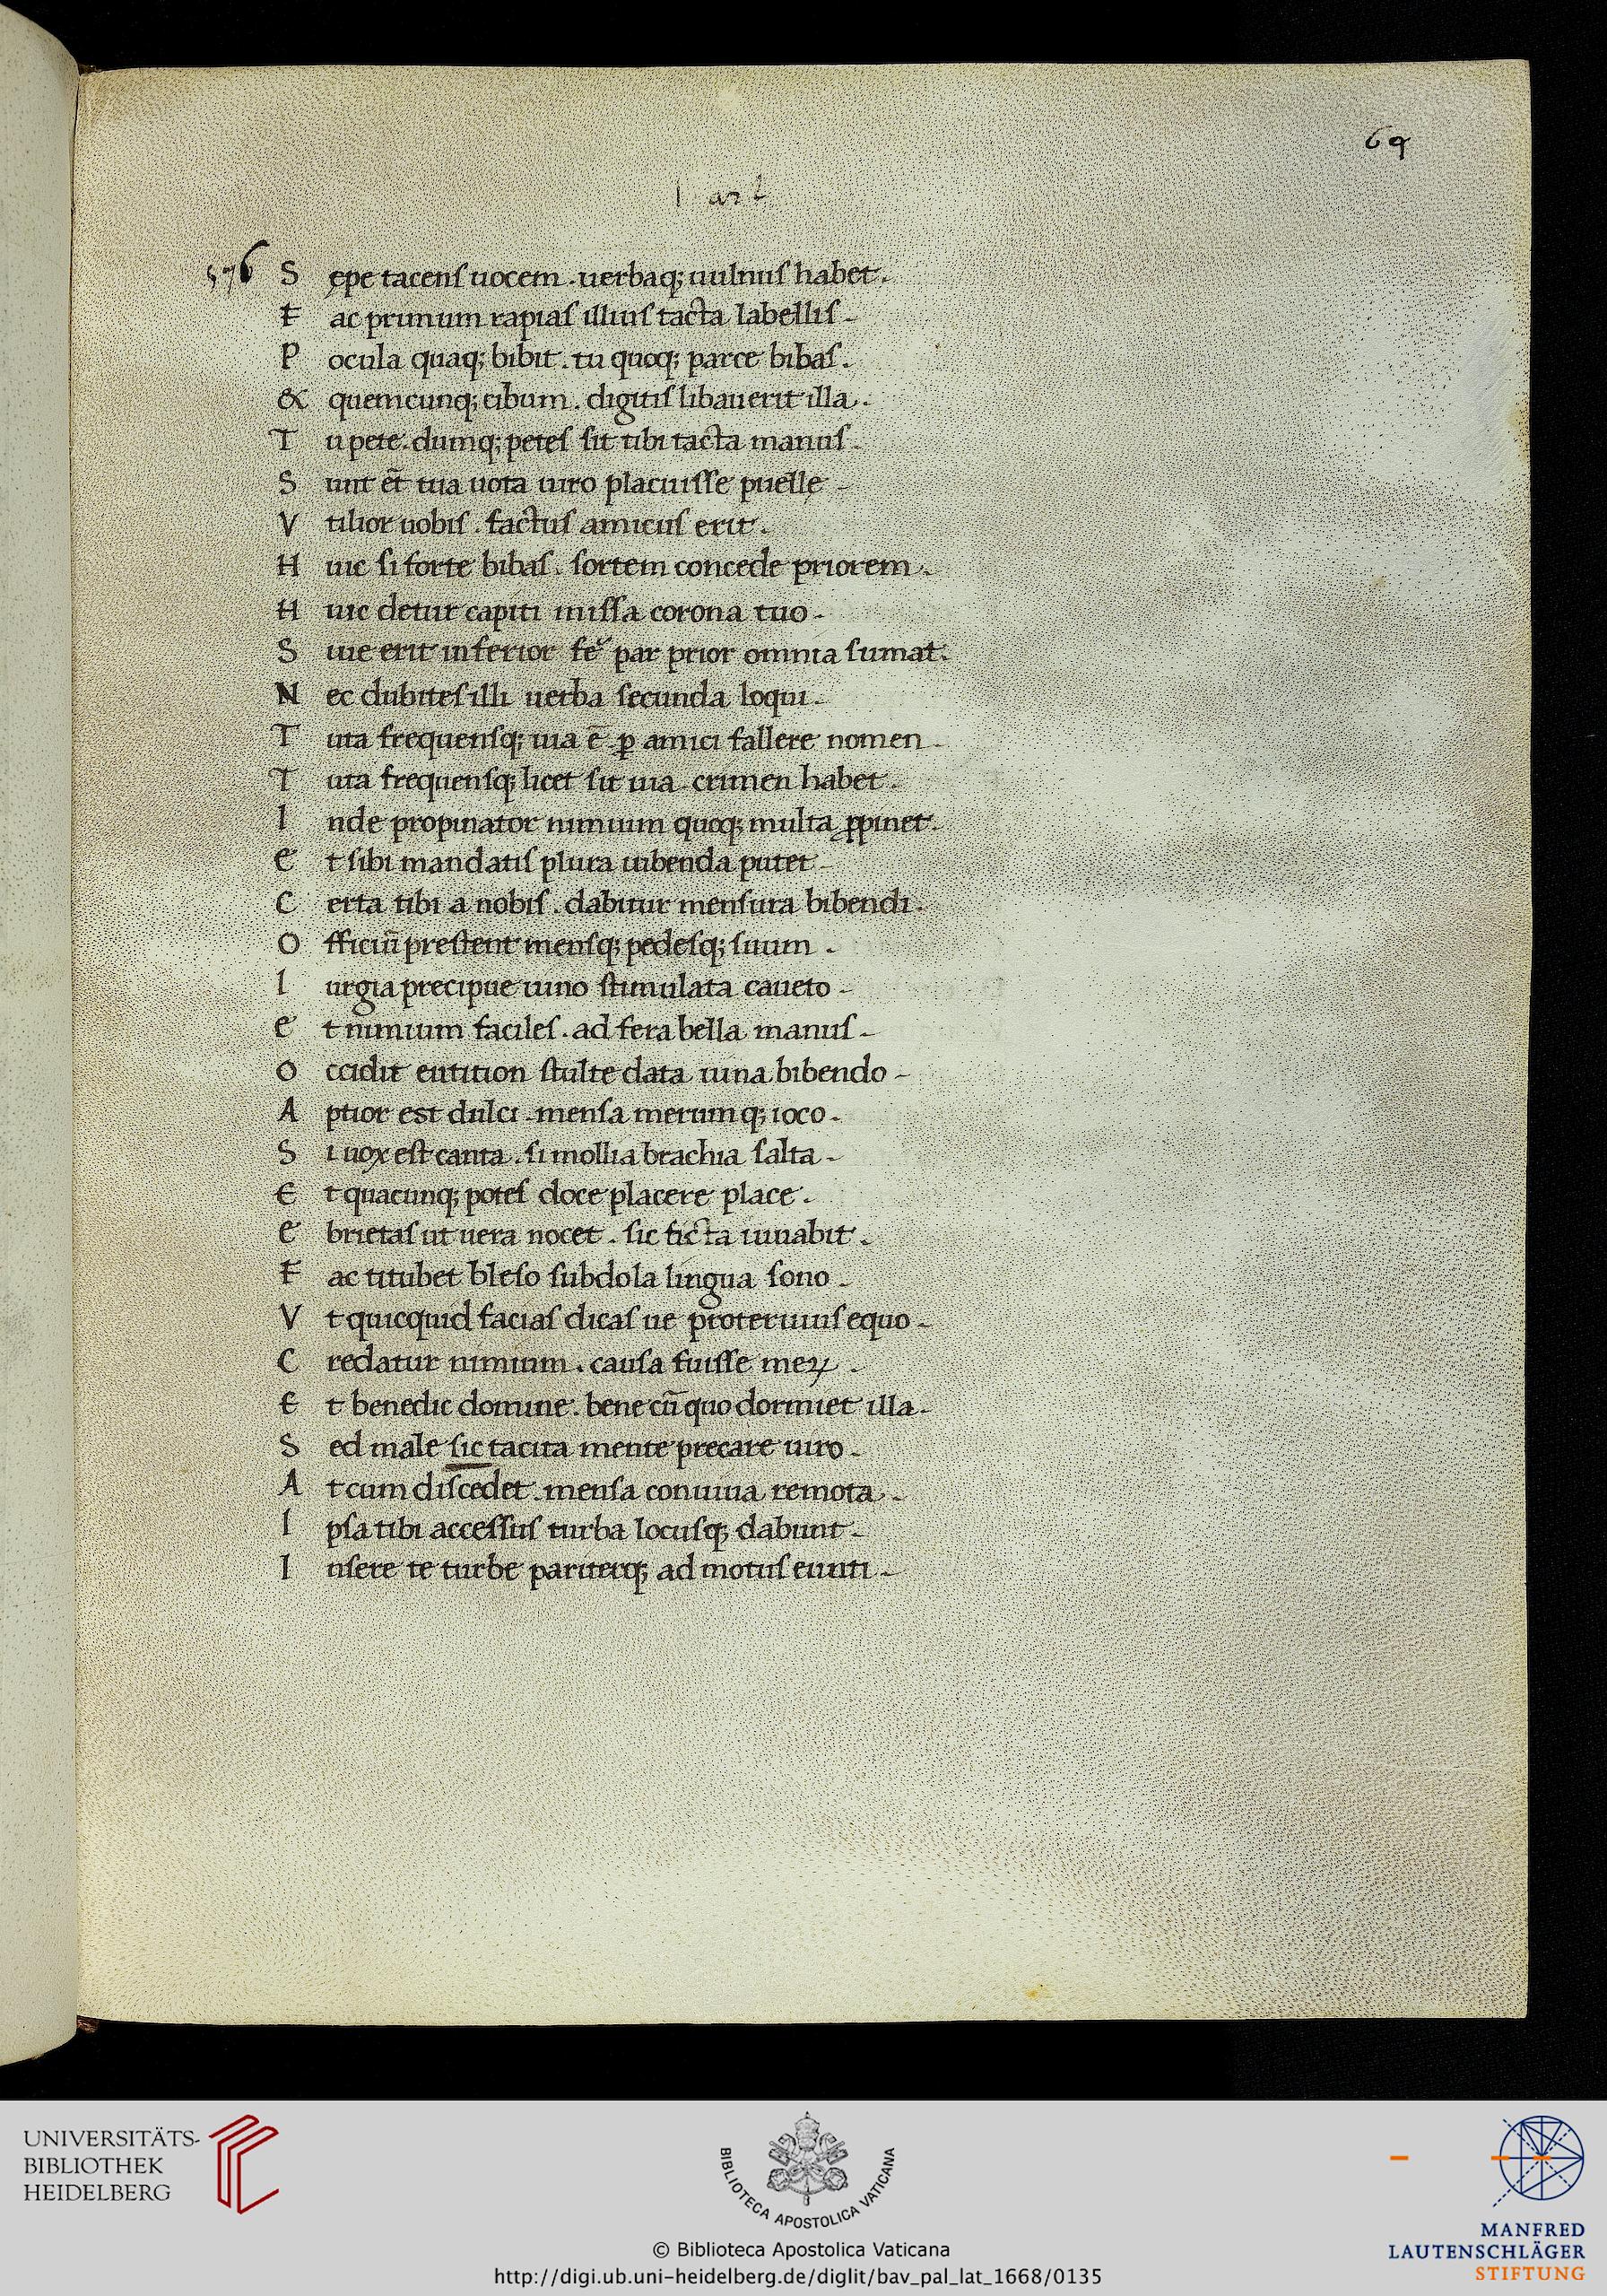 69
I art
576 S ępe tacenſ uocem . uerbaq; uulnuſ habet .
F ac primum rapiaſ illiuſ tacta labelliſ .
P ocula quaq; bibit . tu quoq; parce bibaſ .
& quemcunq; cibum . digitiſ libauerit illa .
T u pete . dumq; peteſ ſit tibi tacta manuſ .
S int et̄ tua uota uiro placuiſſe puelle .
V tilior uobiſ . factuſ amicuſ erit .
H uic ſi forte bibaſ . ſortem concede priorem .
H uic detur capiti miſſa corona tuo .
S iue erit inferior ſeˇ par prior omnia ſumat .
N ec dubiteſ illi uerba ſecunda loqui .
T uta frequenſq; uia ē ꝑ amici fallere nomen .
T uta frequenſq; licet ſit uia . crimen habet .
I nde propinator nimium quoq; multa ꝓpinet .
E t ſibi mandatiſ plura uibenda putet .
C erta tibi a nobiſ . dabitur menſura bibendi .
O fficiū preſtent menſq; pedeſq; ſuum .
I urgia precipue uino ſtimulata caueto .
E t nimium facileſ . ad fera bella manuſ .
O ccidit eutition ſtulte data uina bibendo .
A ptior est dulci . menſa merumq; ioco .
S i uox eſt canta . ſi mollia brachia ſalta .
E t quacunq; poteſ doce placere place .
E brietaſ ut uera nocet . ſic ficta iuuabit .
F ac titubet bleſo ſubdola lingua ſono .
V t quicquid faciaſ dicaſ ue proteruiuſ equo .
C redatur nimium . cauſa fuiſſe meꝝ .
E t benedic domine . bene cū quo dormiet illa .
S ed male ſic tacita mente precare uiro .
A t cum diſcedet . menſa conuiua remota .
I pſa tibi acceſſuſ turba locuſq; dabunt .
I nſere te turbe pariterq; ad motuſ eunti .
UNIVERSITÄTS-
BIBLIOTHEK
HEIDELBERG
BIBLIOTECA APOSTOLICA VATICANA
© Biblioteca Apostolica Vaticana
http://digi.ub.uni-heidelberg.de/diglit/bav_pal_lat_1668/0135
MANFRED
LAUTENSCHLÄGER
STIFTUNG